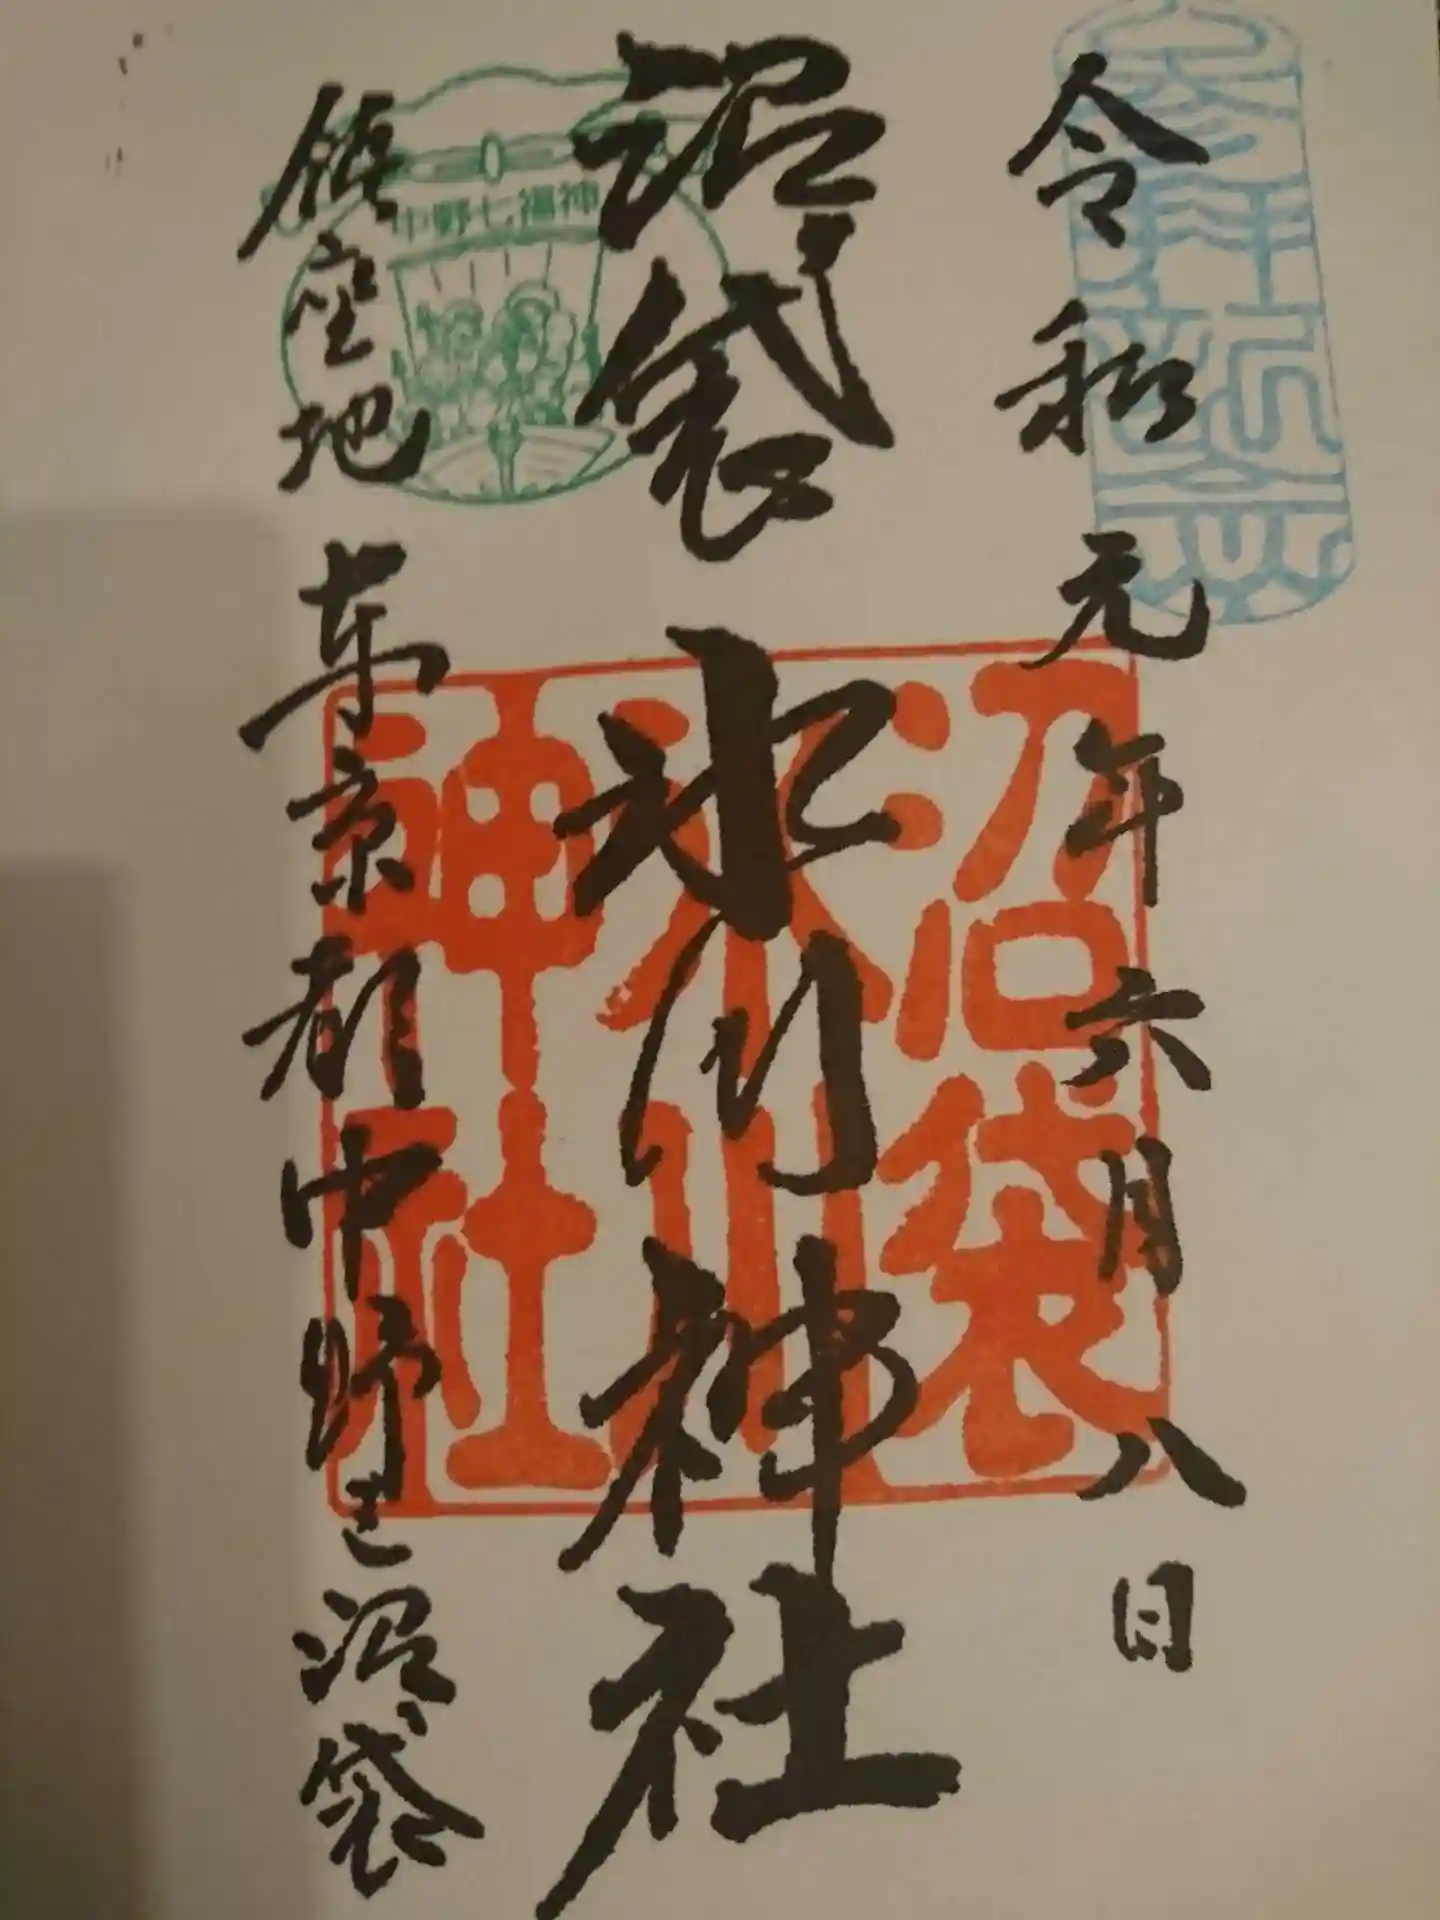 参拝記念
令和元年六月八日
沼袋氷川神社
沼袋
氷川
神社
中野七福神
鎮座地 東京都中野区沼袋